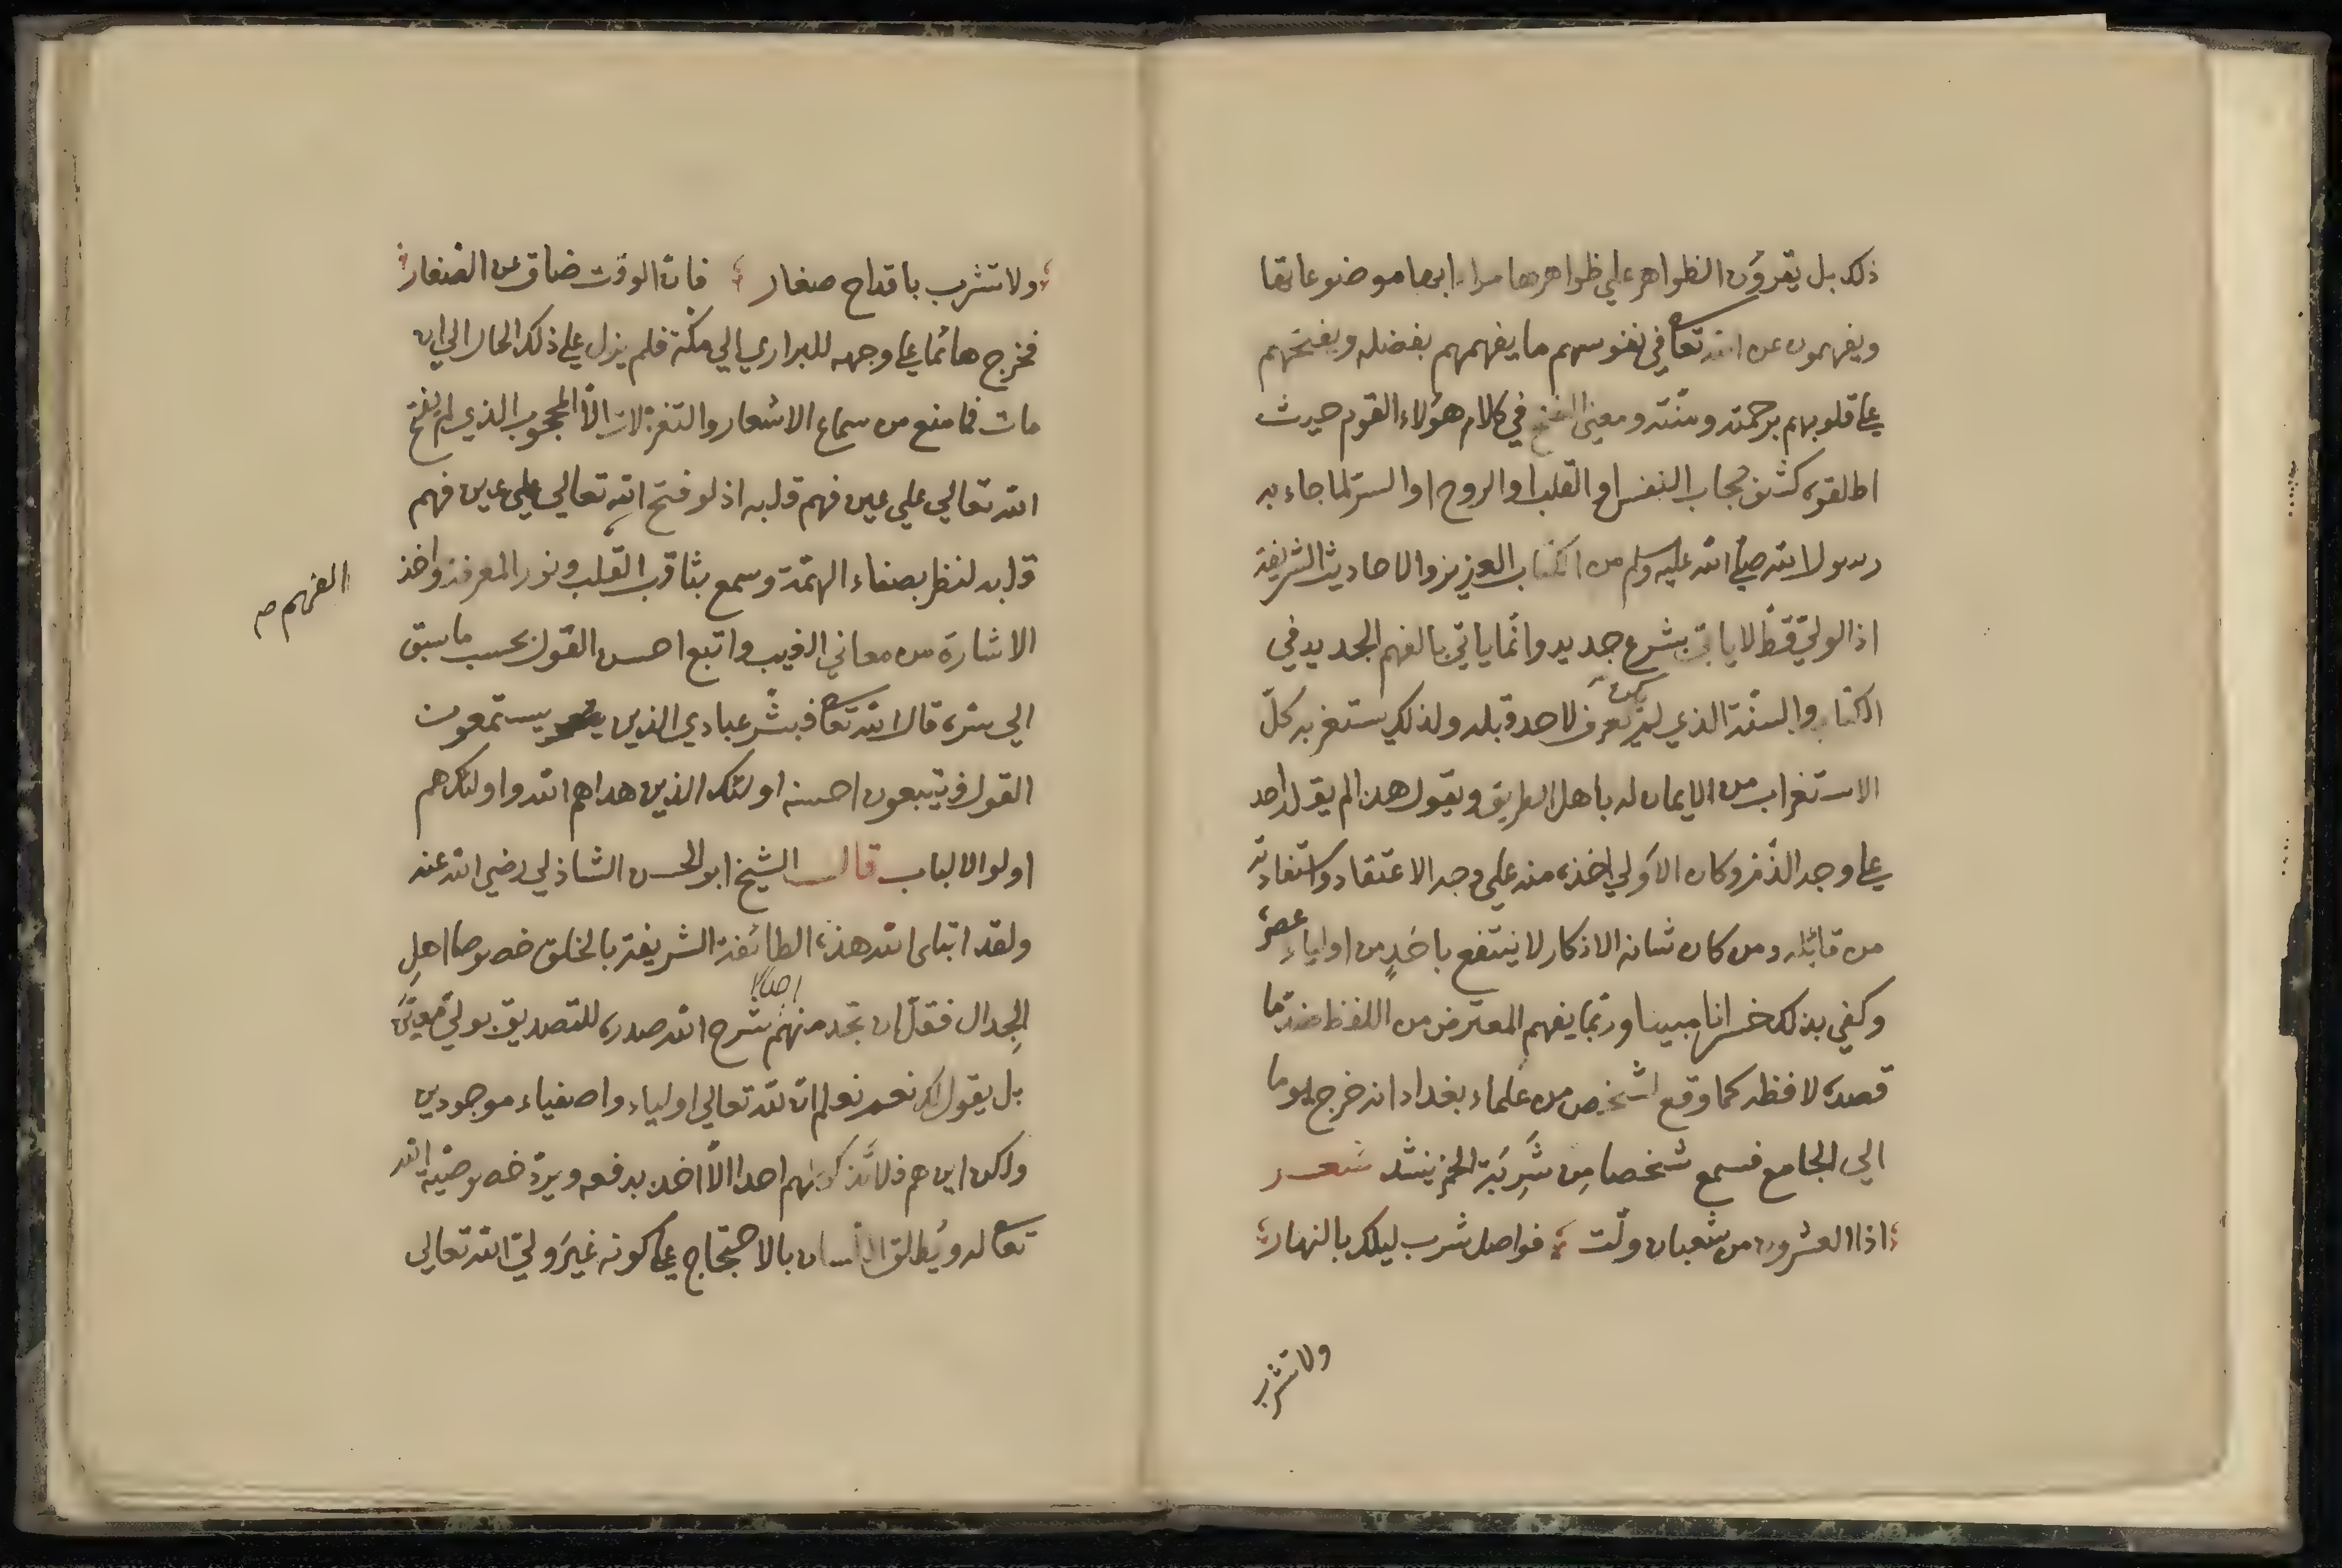 ذلك بل يقرؤن الظواهر علي ظواهرها مرادا بها موضوعاتها
ويفهمون عن الله تعا في نفوسهم ما يفهمهم بفضله ويفتحهم
علي قلوبهم برحمته ومنّته ومعني الفتح في كلام هؤلاء القوم حيث
اطلقوه كشف حجاب النفس او القلب او الروح او السرّ لما جاء به
رسول الله صلي الله عليه وسلم من الكتاب العزيز والاحاديث الشريفة
اذ الوليّ قطّ لا ياتي بشرع جديد وانّما ياتي بالفهم الجديد في
الكتاب والسنّة الذي لم يكن يعرف لاحد قبله ولذلك يستغربه كلّ
الاستغراب من لا ايمان له باهل الطريق ويقول هذا لم يقله احد
علي وجه الذّم وكان الاولي اخذه منه علي وجه الاعتقاد واستفادته
من قائله ومن كان شانه الانكار لا ينتفع باحدٍ من اولياء عصره
وكفي بذلك خسرانا مبينا وربّما يفهم المعترض من اللفظ ضدّ ما
قصده لافظه كما وقع لشخص من علماء بغداد انه خرج يوما
الي الجامع فسمع شخصا من شَرِبَة الخمر ينشد شعر
اذا العشرون من شعبان ولّت فواصل شرب ليلك بالنهار
ولا تشرب
ولا تشرب باقداح صغار فانّ الوقت ضاق عن الصغار
فخرج هائما علي وجهه للبراري الي مكّة فلم يزل علي ذلك الحال الي ان
مات فما منع من سماع الاشعار والتغزلات الّا المحجوب الذي لم يفتح
الله تعالي علي عين فهم قلبه اذ لو فتح الله تعالي علي عين فهم
قلبه لنظر بصفاء الهمّة وسمع بثاقب القلب ونور المعرفة واخذ
الفهم صح
الاشارة من معاني الغيب واتبع احسن القول بحسب ما سبق
الي سرّه قال الله تعا فبشّر عبادي الذين يستمعون
القول فيتبعون احسنه اولئك الذين هداهم الله واولئك هم
اولوا الالباب قال الشيخ ابو الحسن الشاذلي رضي الله عنه
ولقد ابتلي الله هذه الطائفة الشريفة بالخلق خصوصا اهل
الجدال فقلّ ان تجد منهم احدًا شرح الله صدره للتصديق بوليّ معيّن
بل يقول لك نعم نعلم انّ لله تعالي اولياء واصفياء موجودين
ولكن اين هم فلا تذكر لهم احدا الّا اخذ يدفعه ويردّ خصوصيّة الله
تعا له ويُطلق اللّسان بالاحتجاج علي كونه غيرَ وليّ الله تعالي